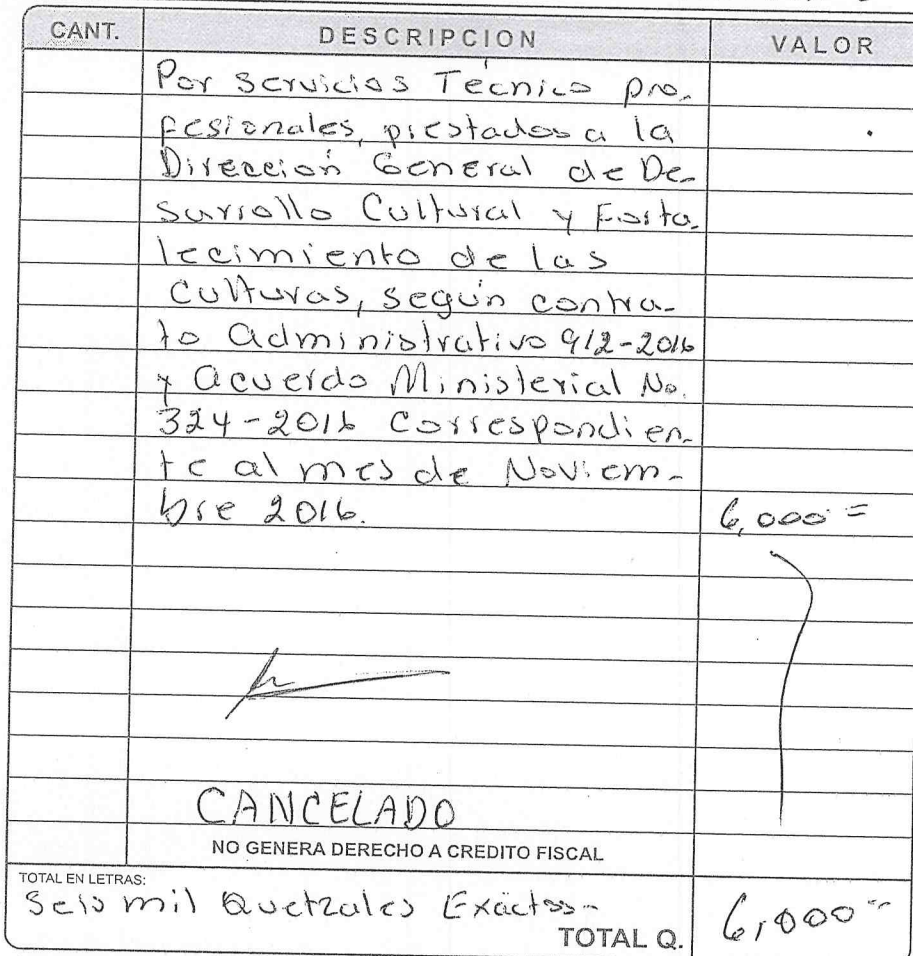 CANT. DESCRIPCION VALOR
Por servicios Técnico pro-
fesionales, prestados a la
Dirección General de De-
sarrollo Cultural y Forta-
lecimiento de las
Culturas, según contra-
to Administrativo 912-2016
y Acuerdo Ministerial No.
324-2016 Correspondien-
te al mes de Noviem-
bre 2016. 6,000=
CANCELADO
NO GENERA DERECHO A CREDITO FISCAL
TOTAL EN LETRAS:
Seis mil Quetzales Exactos-
TOTAL Q. 6,000=